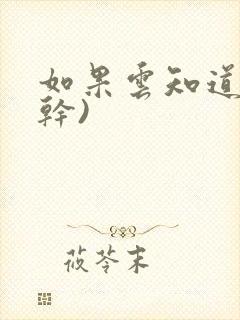 如果雲知道
幹)
莜苓末